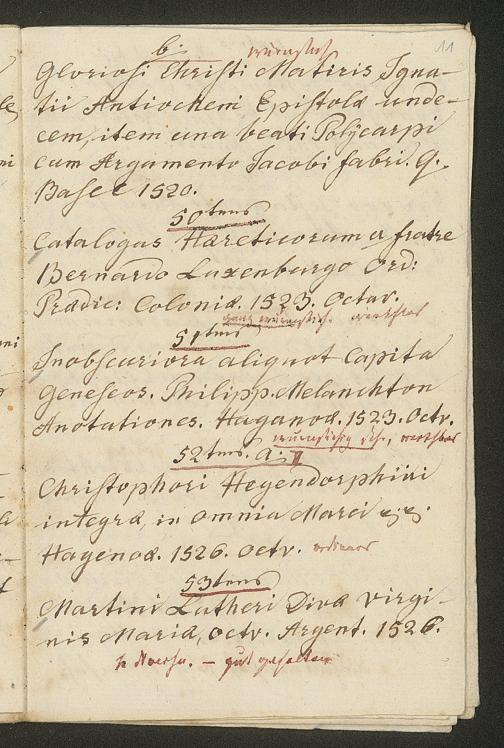 11
b.
Gloriosi Christi Matiris Igna-
tii Antiocheni Epistolæ unde-
cem, item una beati Polycarpi
cum Argumento Jacobi fabri. q.
Basel 1520.
50tens
Catalogus Hæreticorum a fratre
Bernardo Luxenburgo Ord:
Prædic: Coloniæ. 1523. Octav.
51tens
Inobscuriora aliquot Capita
Geneseos. Philipp. Melanchton
Anotationes. Haganoæ. 1523. Octv.
52tens. a.
Christophori Hegendorphini
integra, in omnia Marci
Hagenoæ. 1526. Octv. ordinaar
53tens
Martini Lutheri Divæ Virgi-
nis Mariæ, octv. Argent. 1526.
— gut gehalten